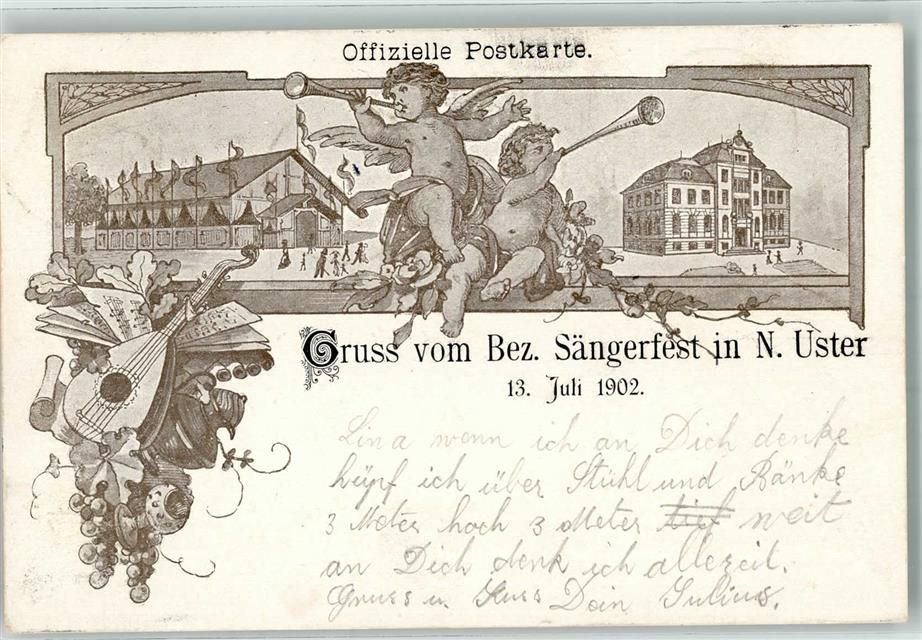 Offizielle Postkarte.
Gruss vom Bez. Sängerfest in N. Uster
13. Juli 1902.
Lina wenn ich an Dich denke
hüpf ich über Stühl und Bänke
3 Meter hoch 3 Meter tief weit
an Dich denk ich allezeit.
Gruss u. Kuss Dein Julius.